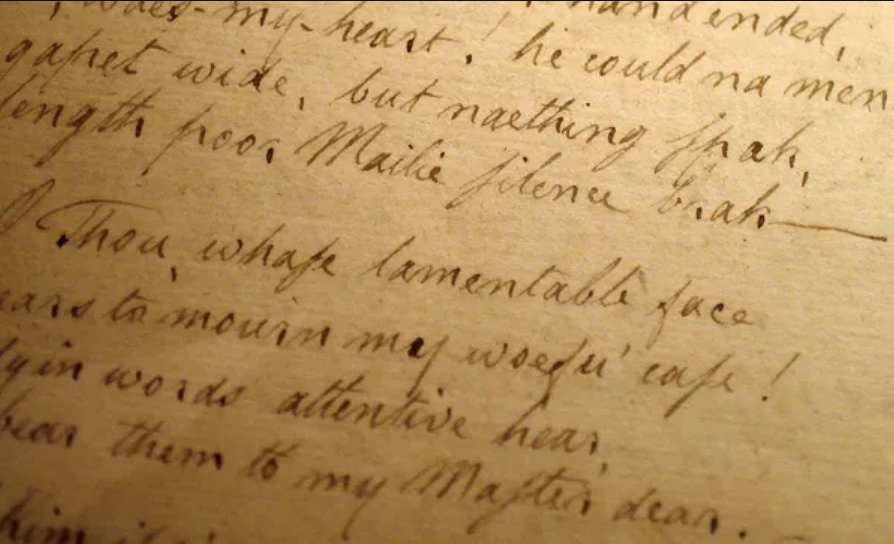 waes-my-heart! he could na men
gapet wide, but naething spak,
length poor Mailie silence brak—
O Thou, whase lamentable face
ears to mourn my woefu' case!
dyin words attentive hear,
bear them to my Master dear.
him